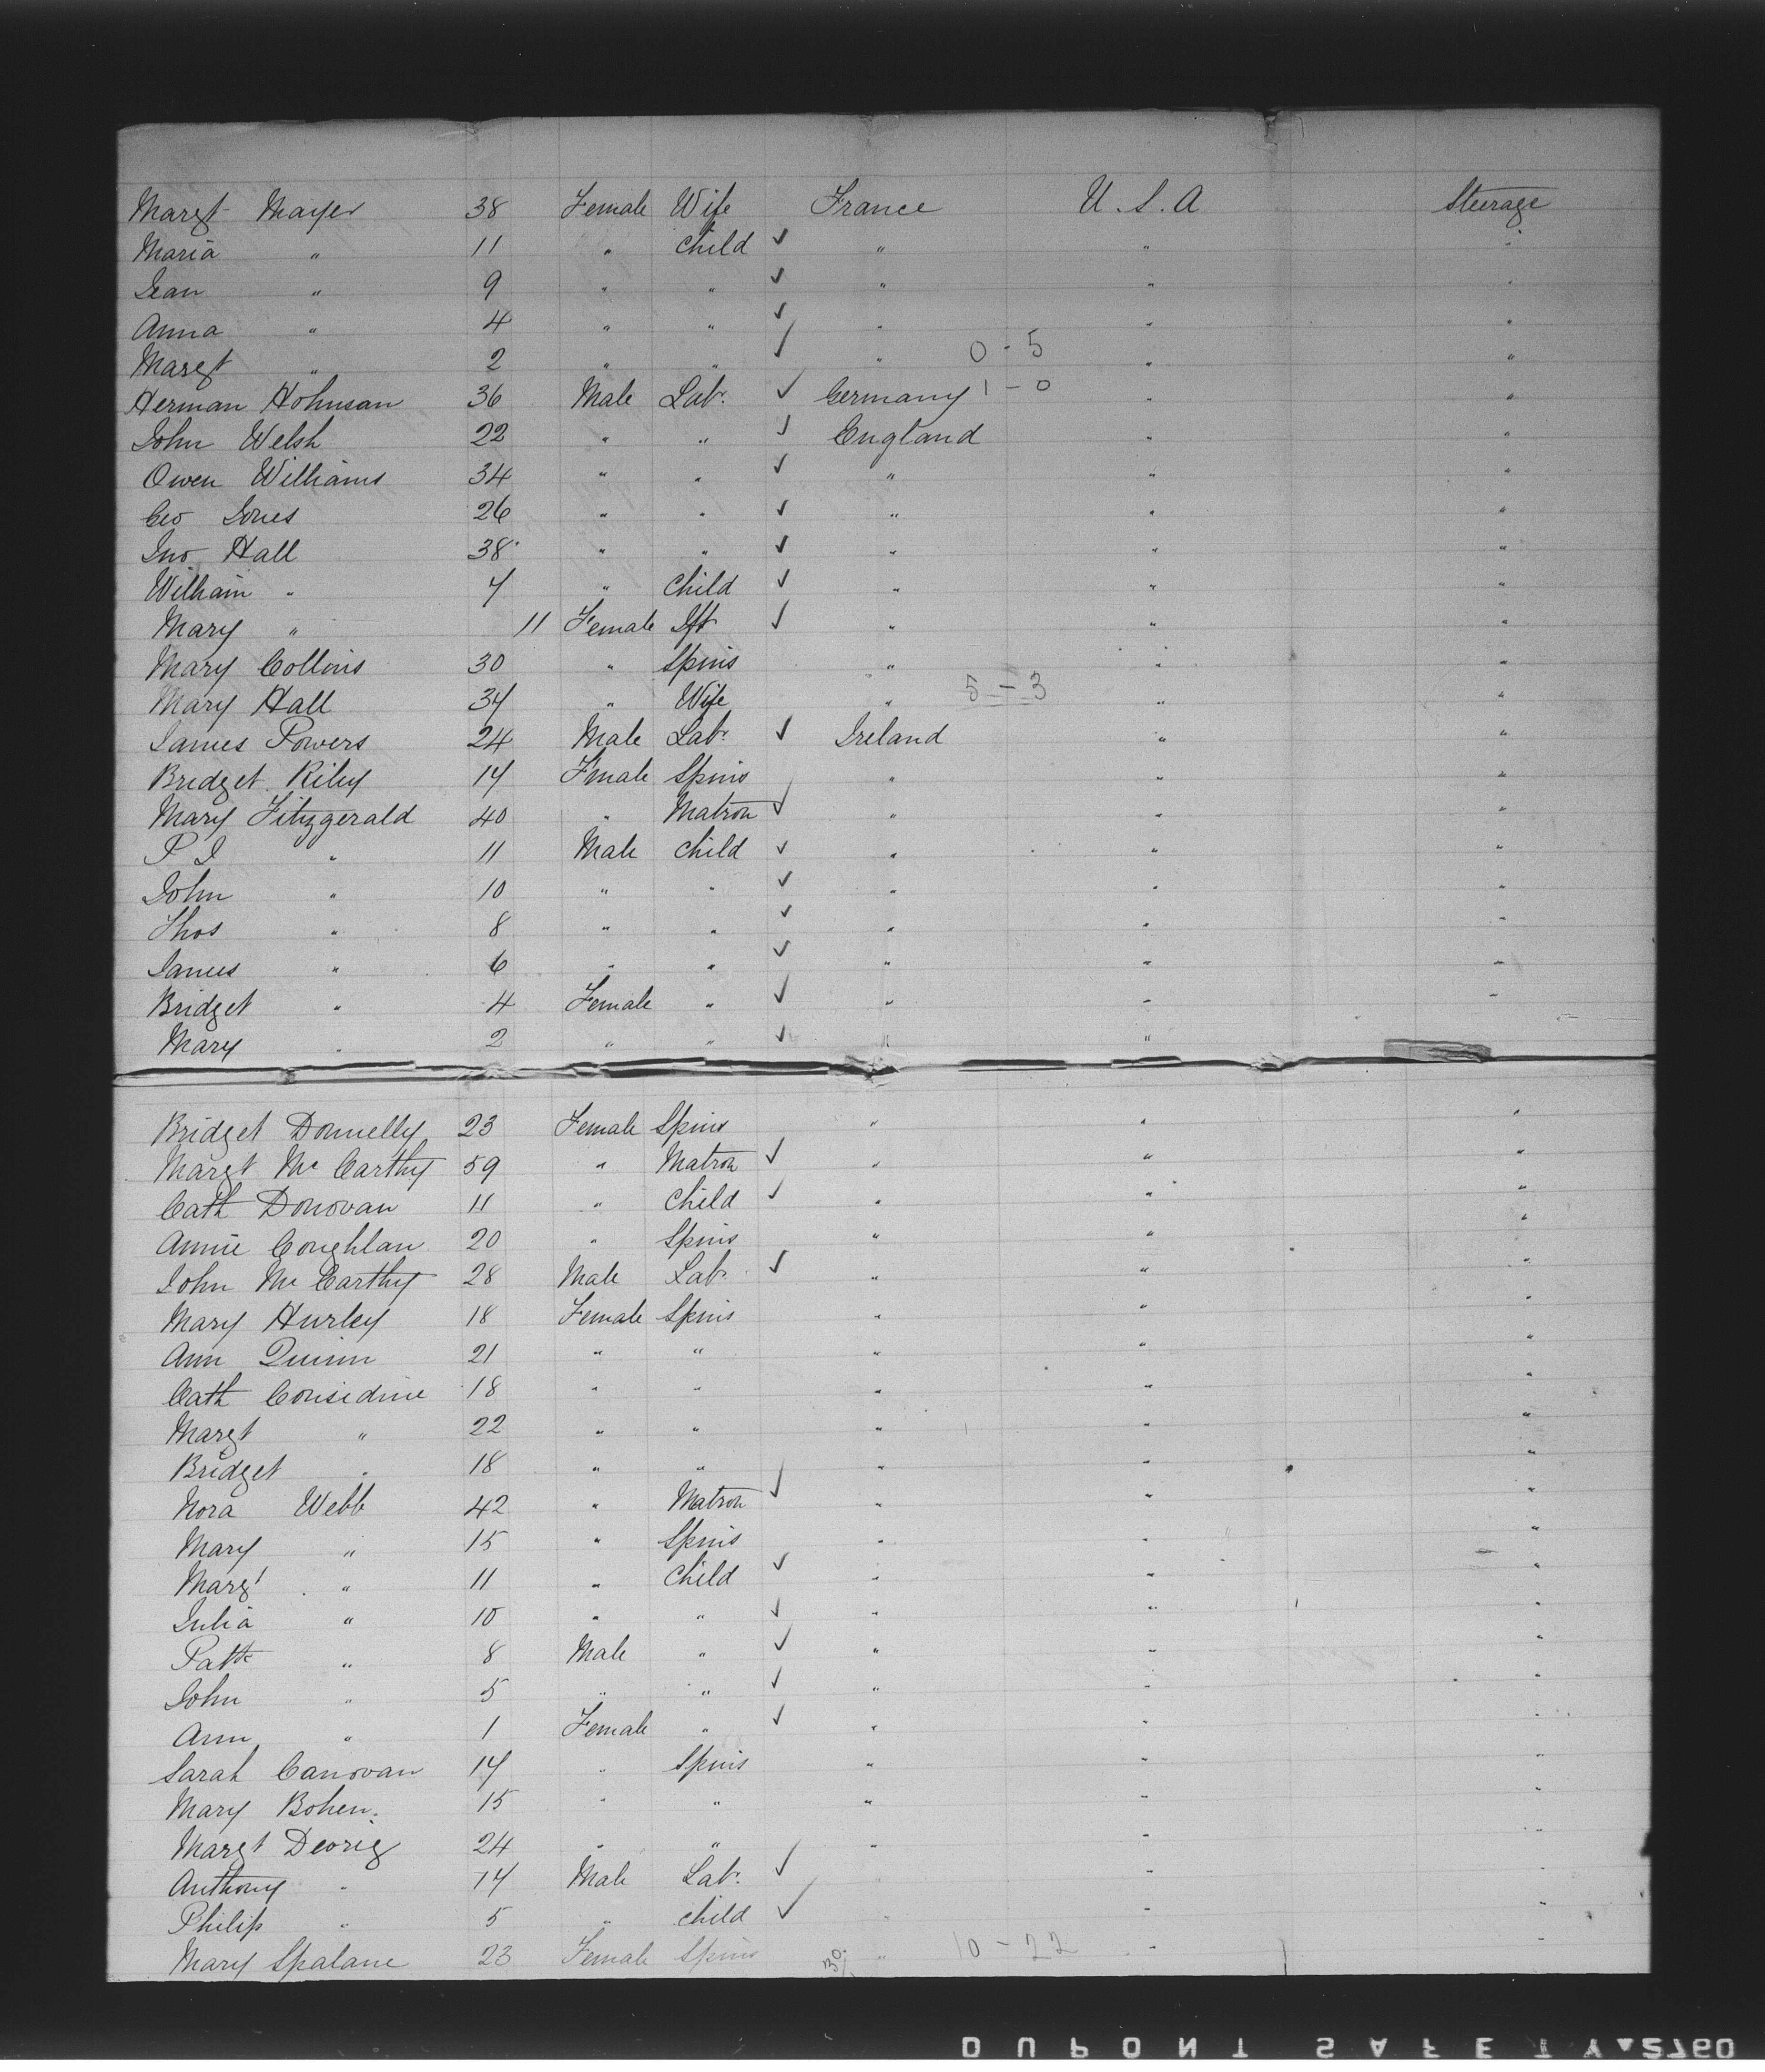 Margt Mayer 38 Female Wife France U.S.A Steerage
Maria " 11 " Child ✓ " " "
Jean " 9 " " ✓ " " "
Anna " 4 " " ✓ " " "
Margt " 2 " " ✓ " 0-5 " "
Herman Hohnsan 36 Male Labr. ✓ Germany 1-0 " "
John Welsh 22 " " ✓ England " "
Owen Williams 34 " " ✓ " " "
Geo Jones 26 " " ✓ " " "
Jno. Hall 38 " " ✓ " " "
William " 4 " Child ✓ " " "
Mary " 11 Female Ift ✓ " " "
Mary Collins 30 " Spins " " "
Mary Hall 34 " Wife " 5-3 " "
James Powers 24 Male Labr. ✓ Ireland " "
Bridget Riley 17 Fmale Spins " " "
Mary Fitzgerald 40 " Matron ✓ " " "
P J " 11 Male Child ✓ " " "
John " 10 " " ✓ " " "
Thos " 8 " " ✓ " " "
James " 6 " " ✓ " " "
Bridget " 4 Female " ✓ " " "
Mary " 2 " " ✓ " "
Bridget Donnelly 23 Female Spins " " "
Margt Mc Carthy 59 " Matron ✓ " " "
Cath Donovan 11 " Child ✓ " " "
Annie Coughlan 20 " Spins " " "
John Mc Carthy 28 Male Labr. ✓ " " "
Mary Hurley 18 Female Spins " " "
Ann Quinn 21 " " " " "
Cath Considine 18 " " " " "
Margt " 22 " " " " "
Bridget " 18 " " " " "
Nora Webb 42 " Matron ✓ " " "
Mary " 15 " Spins " " "
Margt " 11 " Child ✓ " " "
Julia " 10 " " ✓ " " "
Patk " 8 Male " ✓ " " "
John " 5 " " ✓ " " "
Ann " 1 Female " ✓ " " "
Sarah Canovan 17 " Spins " " "
Mary Bohen. 15 " " " " "
Margt Deorig 24 " " " " "
Anthony " 14 Male Labr. ✓ " "
Philip " 5 " Child ✓ " " "
Mary Spalane 23 Female Spins " 10-22 " "
DUPONT SAFETY 2760